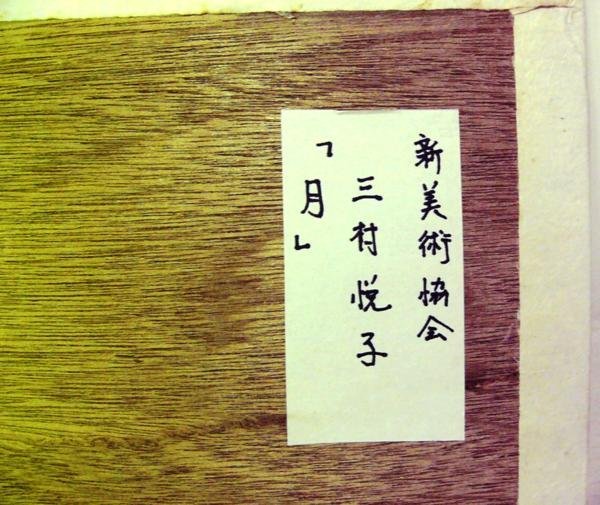 新美術協会
三村悦子
「月」